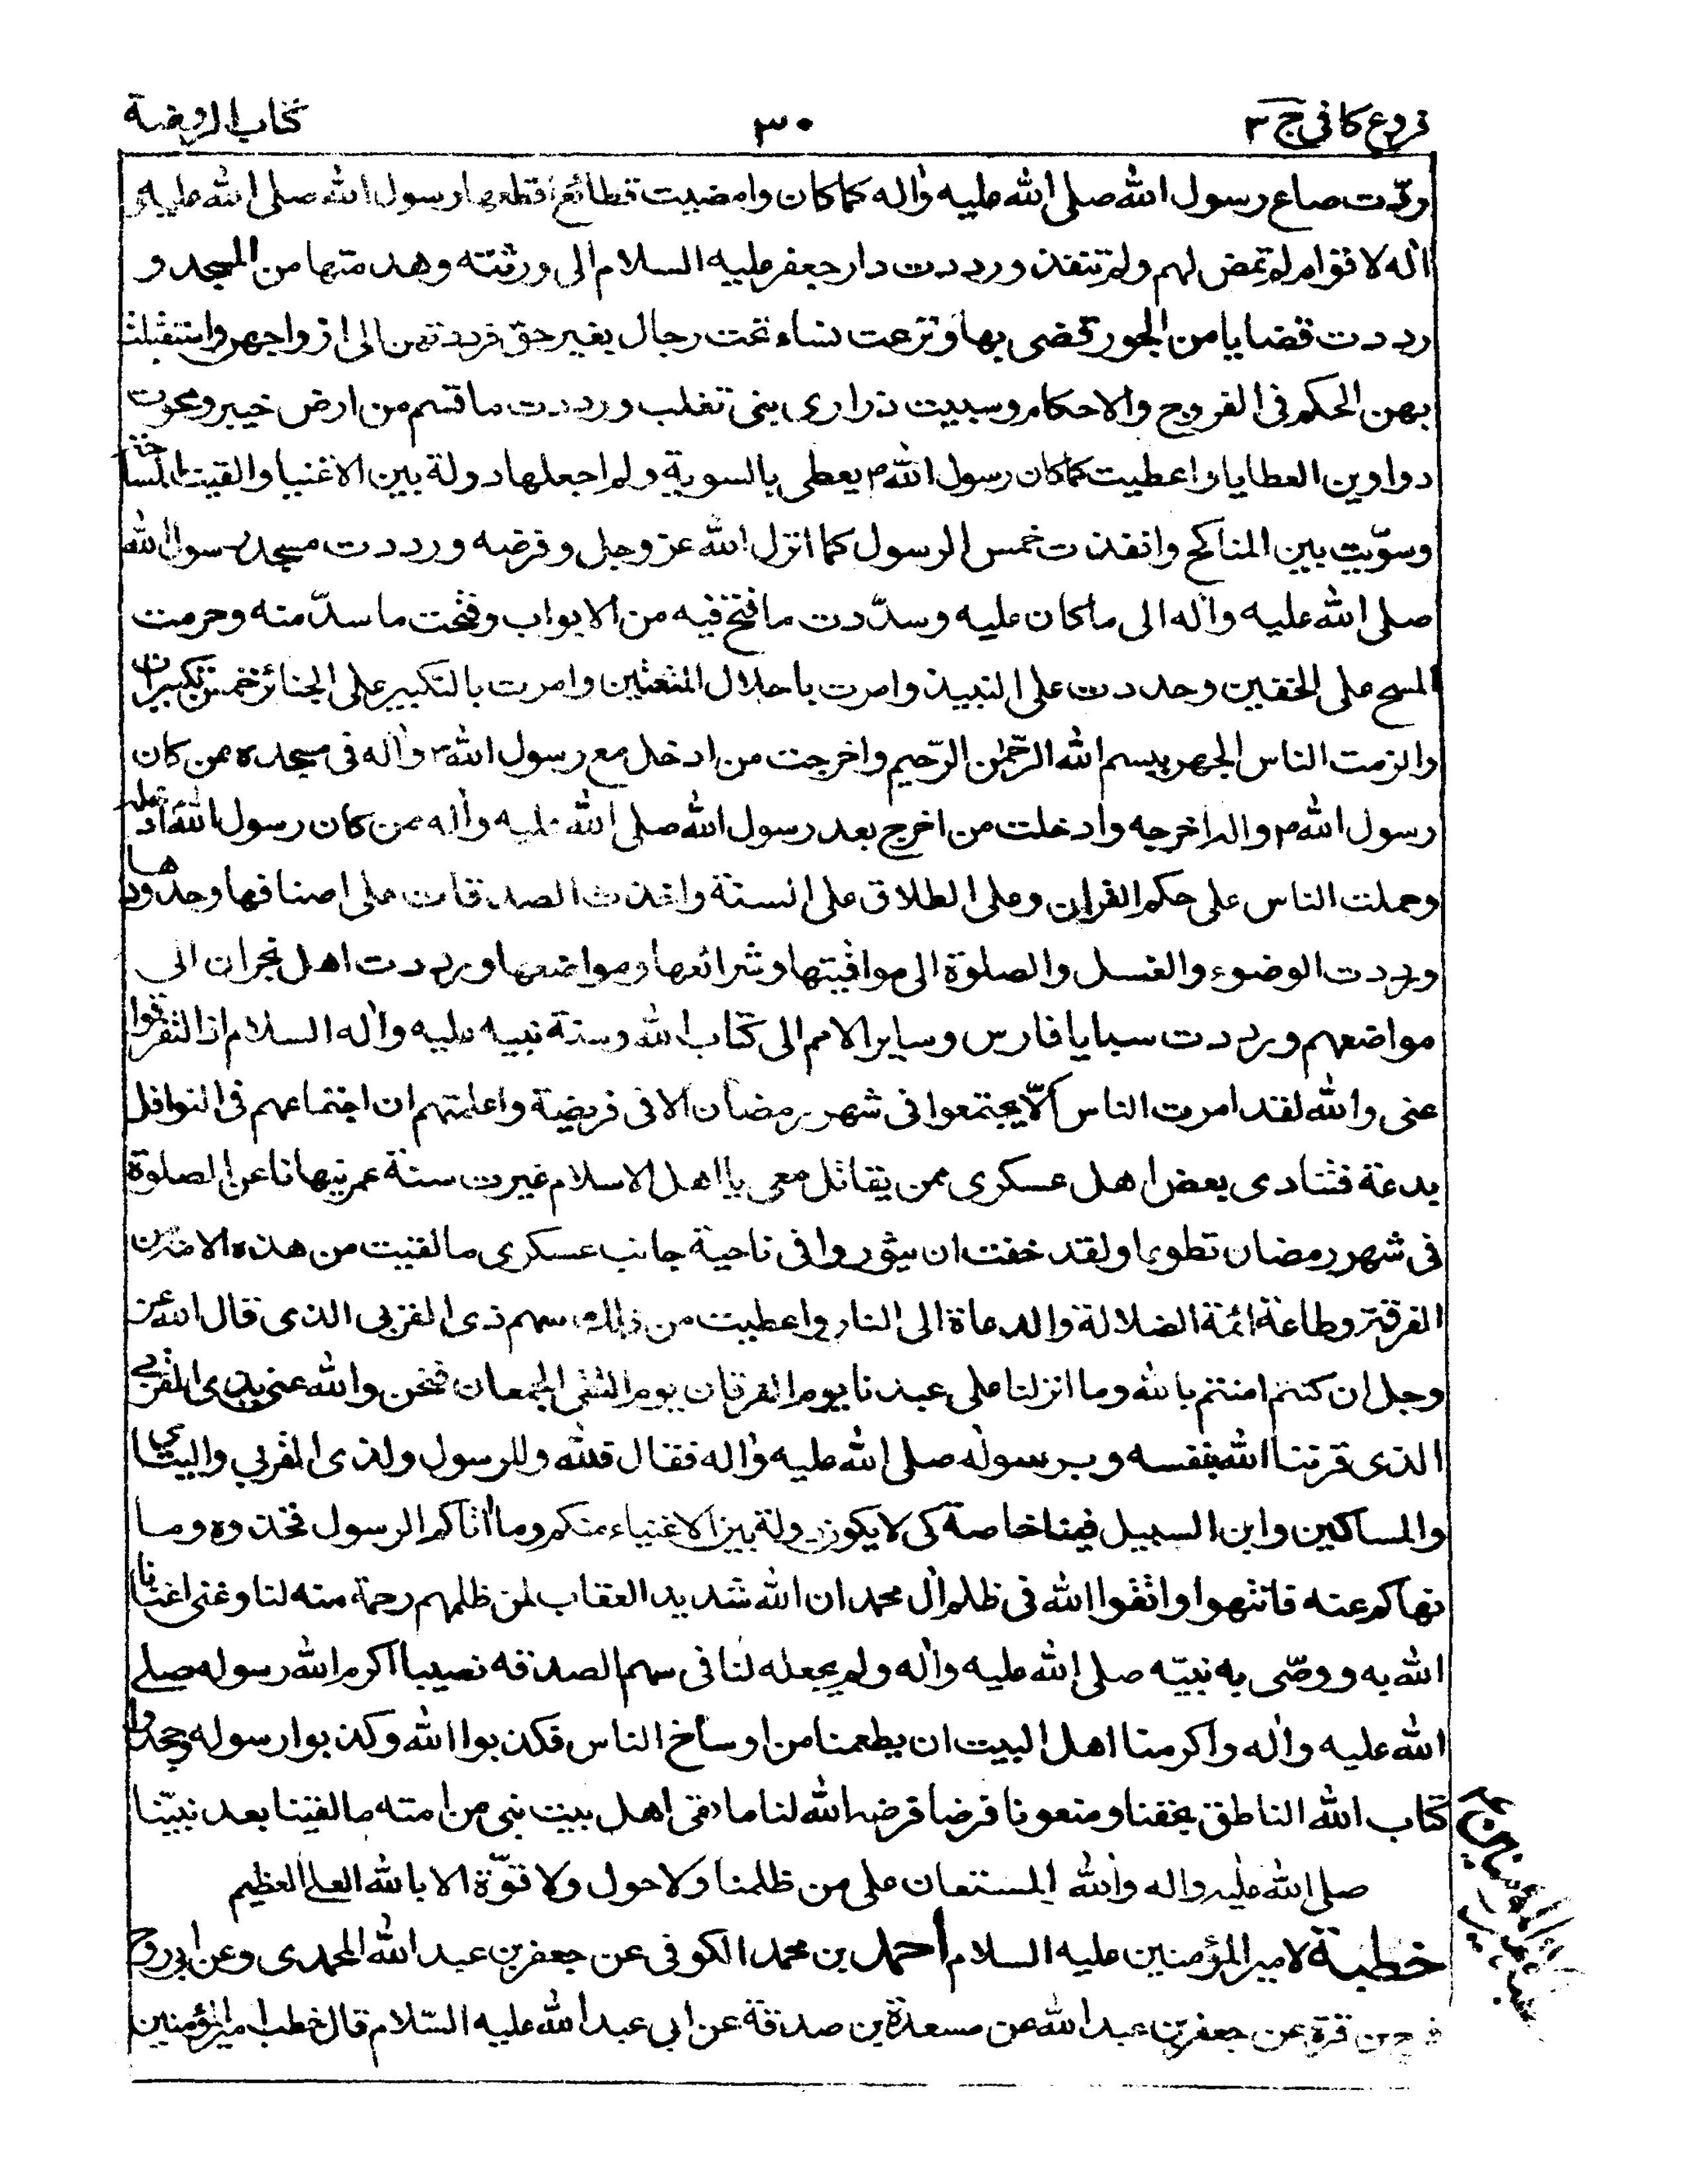 فروع كافى ج ٣
٣٠
كتاب الروضة
رددت صاع رسول الله صلى الله عليه واله كما كان وامضيت قطائع اقطعها رسول الله صلى الله عليه و
اله لاقوام لم تمض لهم ولم تنفذ ورددت دار جعفر عليه السلام الى ورثته وهدمتها من المسجد و
رددت قضايا من الجور قضى بها ونزعت نساء تحت رجال بغير حق فرددتهن الى ازواجهن واستقبلت
بهن الحكم فى الفروج والاحكام وسبيت ذرارى بنى تغلب ورددت ما قسم من ارض خيبر ومحوت
دواوين العطايا واعطيت كما كان رسول الله ص يعطى بالسوية ولم اجعلها دولة بين الاغنيا والقيت المساحة
وسوّيت بين المناكح وانفذت خمس الرسول كما انزل الله عز وجل وفرضه ورددت مسجد رسول الله
صلى الله عليه واله الى ما كان عليه وسدّدت ما فتح فيه من الابواب وفتحت ما سدّ منه وحرمت
المسح على الخفين وحددت على النبيذ وامرت باحلال المتعتين وامرت بالتكبير على الجنائز خمس تكبيرات
والزمت الناس الجهر ببسم الله الرّحمن الرّحيم واخرجت من ادخل مع رسول الله ص واله فى مسجده ممن كان
رسول الله ص واله اخرجه وادخلت من اخرج بعد رسول الله صلى الله عليه واله ممن كان رسول الله ادخله
وحملت الناس على حكم القران وعلى الطلاق على السنة واخذت الصدقات على اصنافها وحدودها
ورددت الوضوء والغسل والصلوة الى مواقيتها وشرائعها ومواضعها ورددت اهل نجران الى
مواضعهم ورددت سبايا فارس وساير الامم الى كتاب الله وسنة نبيه عليه واله السلام اذا لتفرقوا
عنى والله لقد امرت الناس ألّا يجتمعوا فى شهر رمضان الا فى فريضة واعلمتهم ان اجتماعهم فى النوافل
بدعة فتنادى بعض اهل عسكرى ممن يقاتل معى يا اهل الاسلام غيرت سنة عمر نيهانا عن الصلوة
فى شهر رمضان تطوعا ولقد خفت ان يثوروا فى ناحية جانب عسكرى ما لقيت من هذه الامة من
الفرقة وطاعة ائمة الضلالة والدعاة الى النار واعطيت من ذلك سهم ذى القربى الذى قال الله عز
وجل ان كنتم امنتم بالله وما انزلنا على عبدنا يوم الفرقان يوم التقى الجمعان فنحن والله عنى بذى القربى
الذى قرننا الله بنفسه وبرسوله صلى الله عليه واله فقال فلله وللرسول ولذى القربى واليتامى
والمساكين وابن السبيل فينا خاصة كى لا يكون دولة بين الاغنياء منكم وما اتاكم الرسول فخذوه وما
نهاكم عنه فانتهوا واتقوا الله فى ظلم آل محمد ان الله شديد العقاب لمن ظلمهم رحمة منه لنا وغنى اغنانا
الله به ووصّى به نبيّه صلى الله عليه واله ولم يجعل له لنا فى سهم الصدقه نصيبا اكرم الله رسوله صلى
الله عليه واله واكرمنا اهل البيت ان يطعمنا من اوساخ الناس فكذبوا الله وكذبوا رسوله وجحدوا
كتاب الله الناطق بحقنا ومنعونا فرضا فرضه الله لنا ما لقى اهل بيت نبى من امته ما لقينا بعد نبيّنا
صلى الله عليه واله والله المستعان على من ظلمنا ولا حول ولا قوّة الا بالله العلى العظيم
خطبة لامير المؤمنين عليه السلام احمد بن محمد الكوفى عن جعفر بن عبد الله المحمدى وعن ابى روح
فرج بن قرة عن جعفر بن عبد الله عن مسعدة بن صدقة عن ابى عبد الله عليه السّلام قال خطب امير المؤمنين